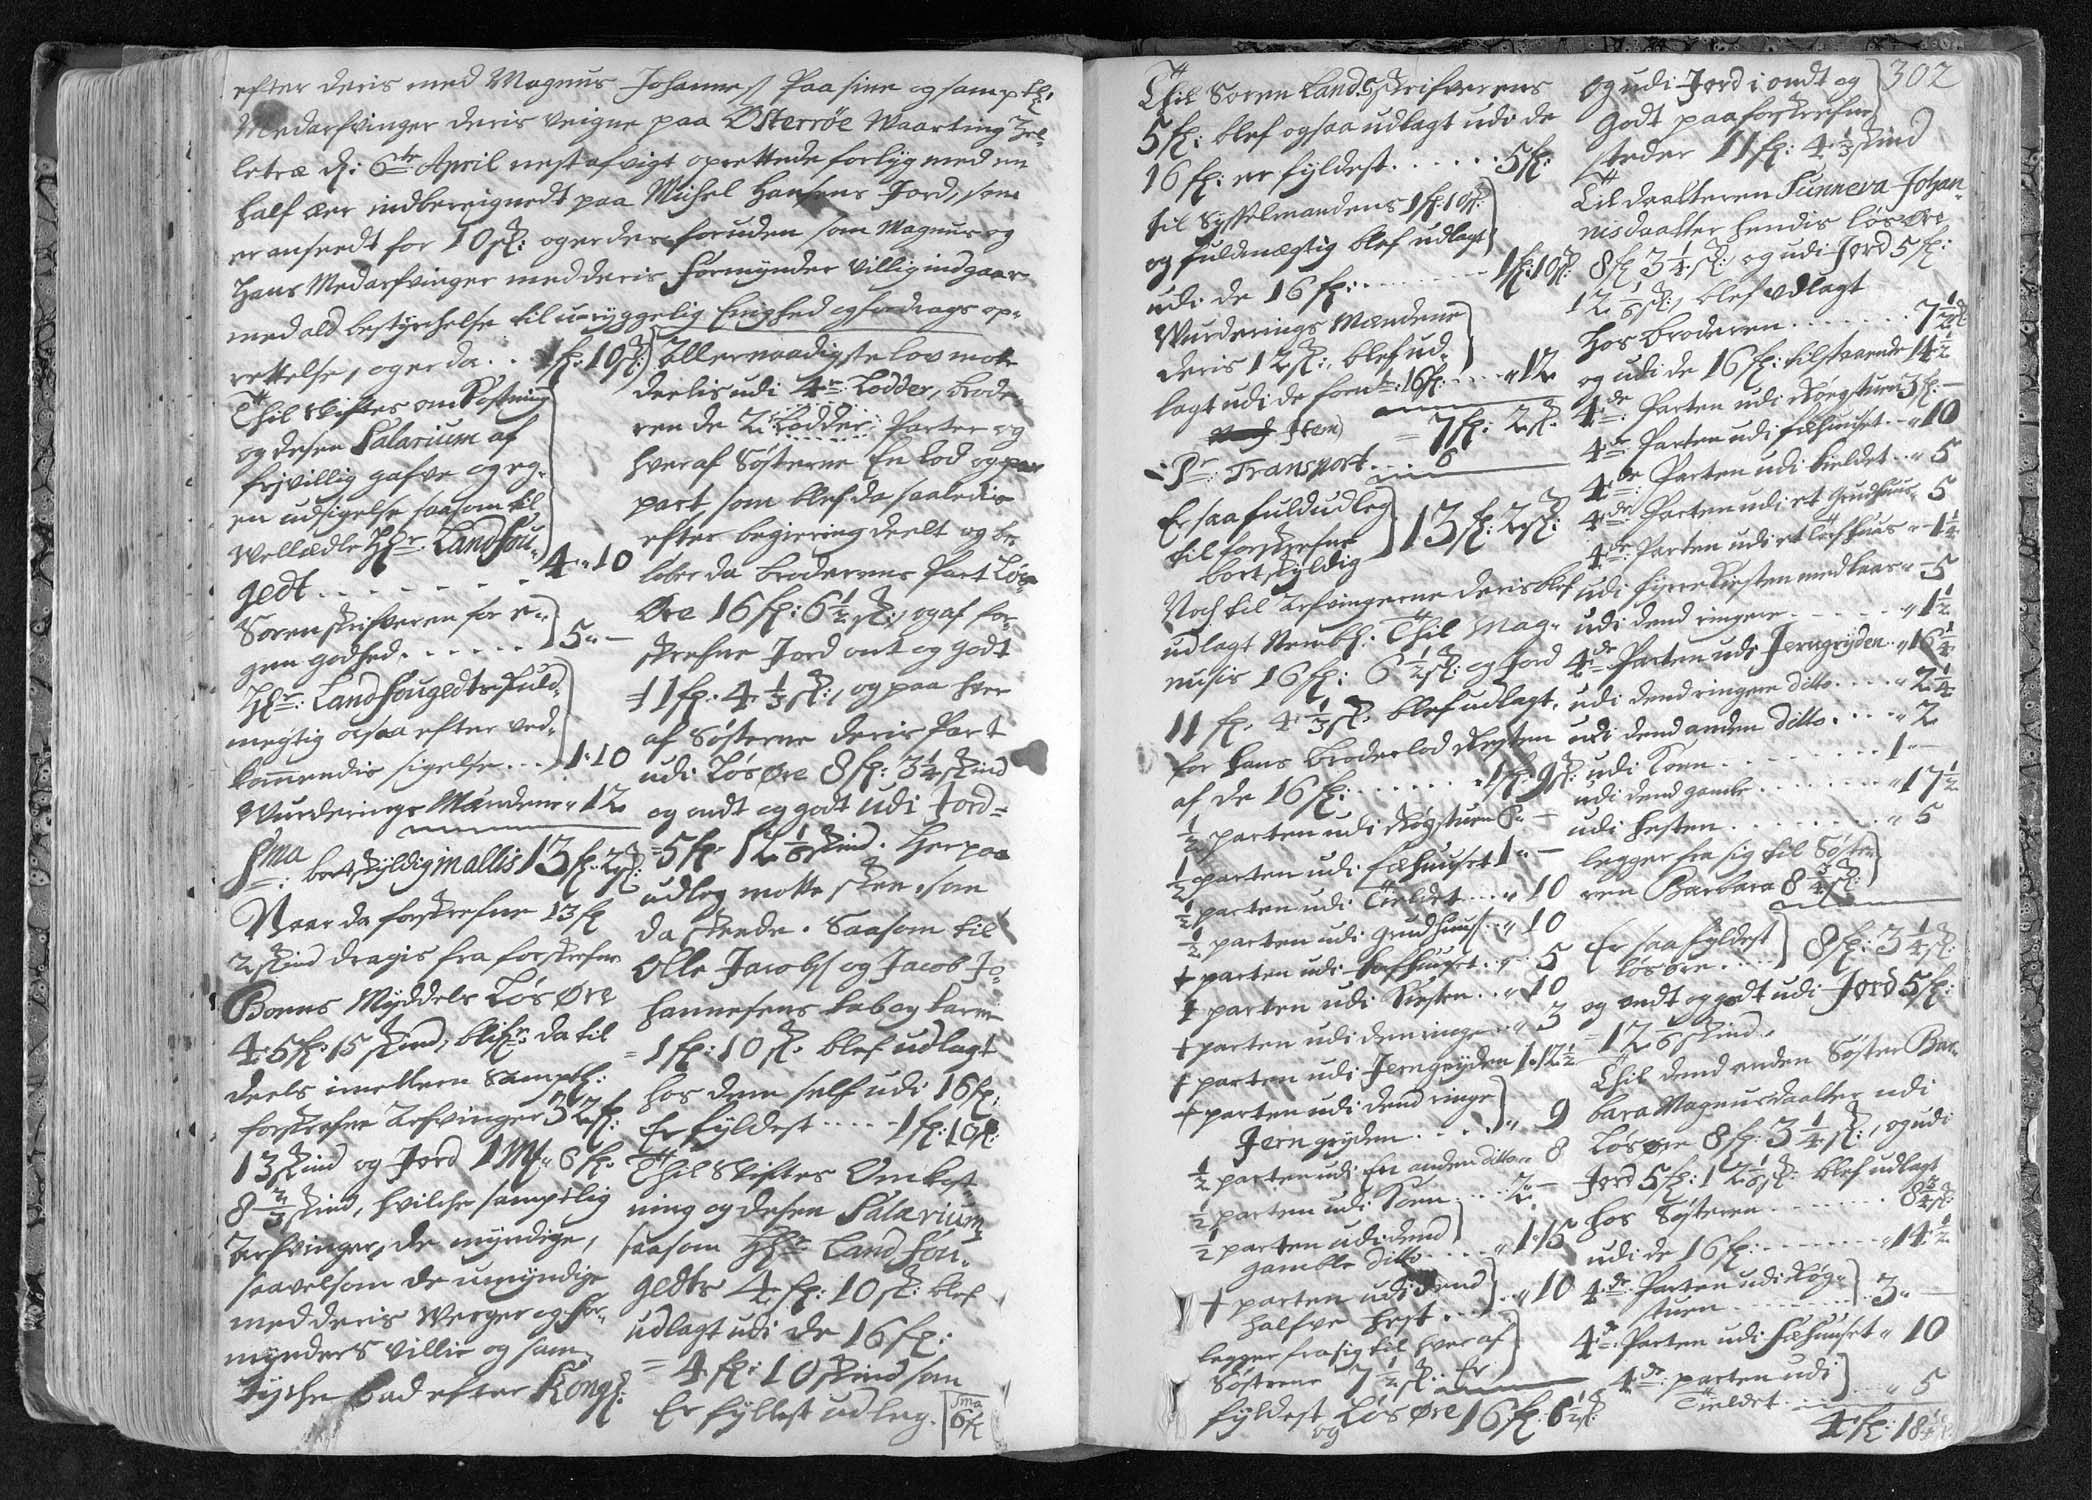 efter deris med Magnus Johannes/ paa sine og samptl:
Medarfvinger deris veigne paa Østerrøe Waarting
letræ d: 6te April nest afvigt oprettede forlig med en
half ær indbereignedt paa Michel Hansens Jord, som
er anseedt for 10 sk: og er des foruden som Magnus og
Hans Medarfvinger med deris formynder villig indgaar
med ald bestyrchelse til uryggelig Einghed og fordrags op-
rettelse, og er da . . 1 fl: 10 sk:
Thil Skiftes omkostning
og desen Salarium af
frivillig gafve og eg-
en udsigelse saasom til
Wellædle Hr: Landfou-
gedt . . . . . . 4 " 10
Sorenskrifveren for e-
gen godhed . . . . . . 5 " —
Hr: Landfougedts Fuld-
megtig ossaa efter ved-
kommendis sigelse . . . 1 " 10
Wurderings Mændene " 12
Sma: bortskyldig in allis 13 fl: 2 sk:
Naar da forskrefne 13 fl
2 skind dragis fra forskrefne
Boens Myddels Løs Øre
45 fl: 15 skind, blifr: da til
deels imellem samptl:
forskrefne Arfvinger 32 fl:
13 skind og Jord 1 M/ 6 fl:
8 2/3 skind, hvilche samptlig
Arfvinger, de myndige,
saavelsom de umyndige
med deris Verger og for-
mynders villie og sam-
tyche bad efter Kongl:
allernaadigste lov motte
deelis udi 4re Lodder, brode-
ren de 2 Lodder Parter og
hver af Søsterne En lod og
part, som blef da saaledis
efter begiering deelt og be-
løber da broderens Part Løs
Øre 16 fl: 6 1/2 sk:, og af for-
skrefne Jord ont og godt
11 fl: 4 1/3 sk:, og paa hver
af Søsterne deris Part
udi Løs Øre 8 fl: 3 1/4 skind
og ondt og godt udi Jord =
= 5 fl: 12 1/6 skind. Herpaa
udleg motte skee, som
da skeede. Saasom til
Olle Jacobs/ og Jacob Jo-
hannesens kab og karm
= 1 fl: 10 sk. blef udlagt
hos dem self udi 16 fl:
Er fyldest . . . . . 1 fl: 10 sk:
Thil Skiftes Omkost-
ning og desen Salarium
saasom Hr: Landfou-
gedts 4 fl: 10 sk: blef
udlagt udi de 16 fl:
= 4 fl: 10 skind som
Er fyllest udleg. Sma 6 fl
302
Thil Soren Landskrifverens
5 fl: blef ogsaa udlagt udi de
16 fl: er fyldest . . . . . . 5 fl:
til Sysselmandens 1 fl: 10 sk:
og fuldmegtig blef udlagt
udi de 16 fl: . . . . . . 1 fl: 10 sk:
Wurderings Mændene
deris 12 sk:, blef ud-
lagt udi de forn: 16 fl: . . . . " 12
Item = 7 fl: 2 sk:
Pr: Transport . . . 6
Er saa fuld udleg
til forskrefne
bortskyldig 13 fl: 2 sk:
Noch til Arfvingerne deris blef
udlagt Nembl: Thil Mag-
nusis 16 fl: 6 1/2 sk: og Jord
11 fl: 4 1/3 sk: blef udlagt,
for hans broderlod Resten
af de 16 fl: . . . . . . 1 fl: 9 sk:
1/2 parten udi Røgstuen 6 " —
1/2 parten udi fæhuuset 1 " —
1/2 parten udi Tieldet . . . " 10
1/2 parten udi Grudhuus/ . . " 10
+ parten udi . . " 5
+ parten udi Kiesten . . " 10
+ parten udi den ringere " 3
+ parten udi Jerngryden 1 " 12 1/2
+ parten udi dend ringe
Jerngryden . . . . " 9
1/2 parten udi En anden ditto " 8
1/2 parten udi Koen . . . . 2 " —
1/2 parten udi dend
gamble ditto . . . . " 1 " 15
+ parten udi dend
halfve hest . . . . " 10
legger fra sig til hver af
Søstrene 7 1/2 sk: Er
fyldest Løs Øre 16 fl: 6 1/2 sk:
og
og udi Jord i ondt og
Godt paa forskrefne
steder 11 fl: 4 1/3 skind
Til daatteren Sunneva Johan-
nisdaatter hendis løs øre
8 fl 3 1/4 sk: og udi Jord 5 fl:
12 1/6 sk:, blef udlagt
hos broderen . . . . . . 7 1/2 sk
og udi de 16 fl: tilstaaende 14 1/2
4de Parten udi Røegstuen 3 fl: —
4de Parten udi fæhuuset . . " 10
4de Parten udi Tieldet . . " 5
4de Parten udi et Grudhuus " 5
4de Parten udi et " 1 1/4
udi fyrrekiesten med laas " 5
udi dend ringere . . . . . . " 1 1/2
4de Parten udi Jerngryden . " 16 1/4
udi dend ringere ditto . . . . " 2 1/4
udi dend anden ditto . . . . " 2
udi Koen . . . . . . . . . 1 " —
udi dend gamle . . . . . . " 17 1/2
udi hesten . . . . . . . . . " 5
legger fra sig til Søste-
ren Barbara 8 3/4 sk:
Er saa fyldest
løs øre . . . . 8 fl: 3 1/4 sk:
og ondt og godt udi Jord 5 fl:
= 12 1/6 skind.
Thil dend anden Søster Bar-
bara Magnusdaatter udi
Løs øre 8 fl: 3 1/4 sk:, og udi
Jord 5 fl: 12 1/6 sk: blef udlagt
hos Søsteren . . . . . . 8 3/4 sk:
udi de 16 fl: . . . . . . . " 14 1/2
4de Parten udi Røg-
stuen . . . . . . . 3 " —
4de Parten udi Fæhuuset " 10
4de parten udi
Tieldet . . . . " 5
4 fl: 18 1/4